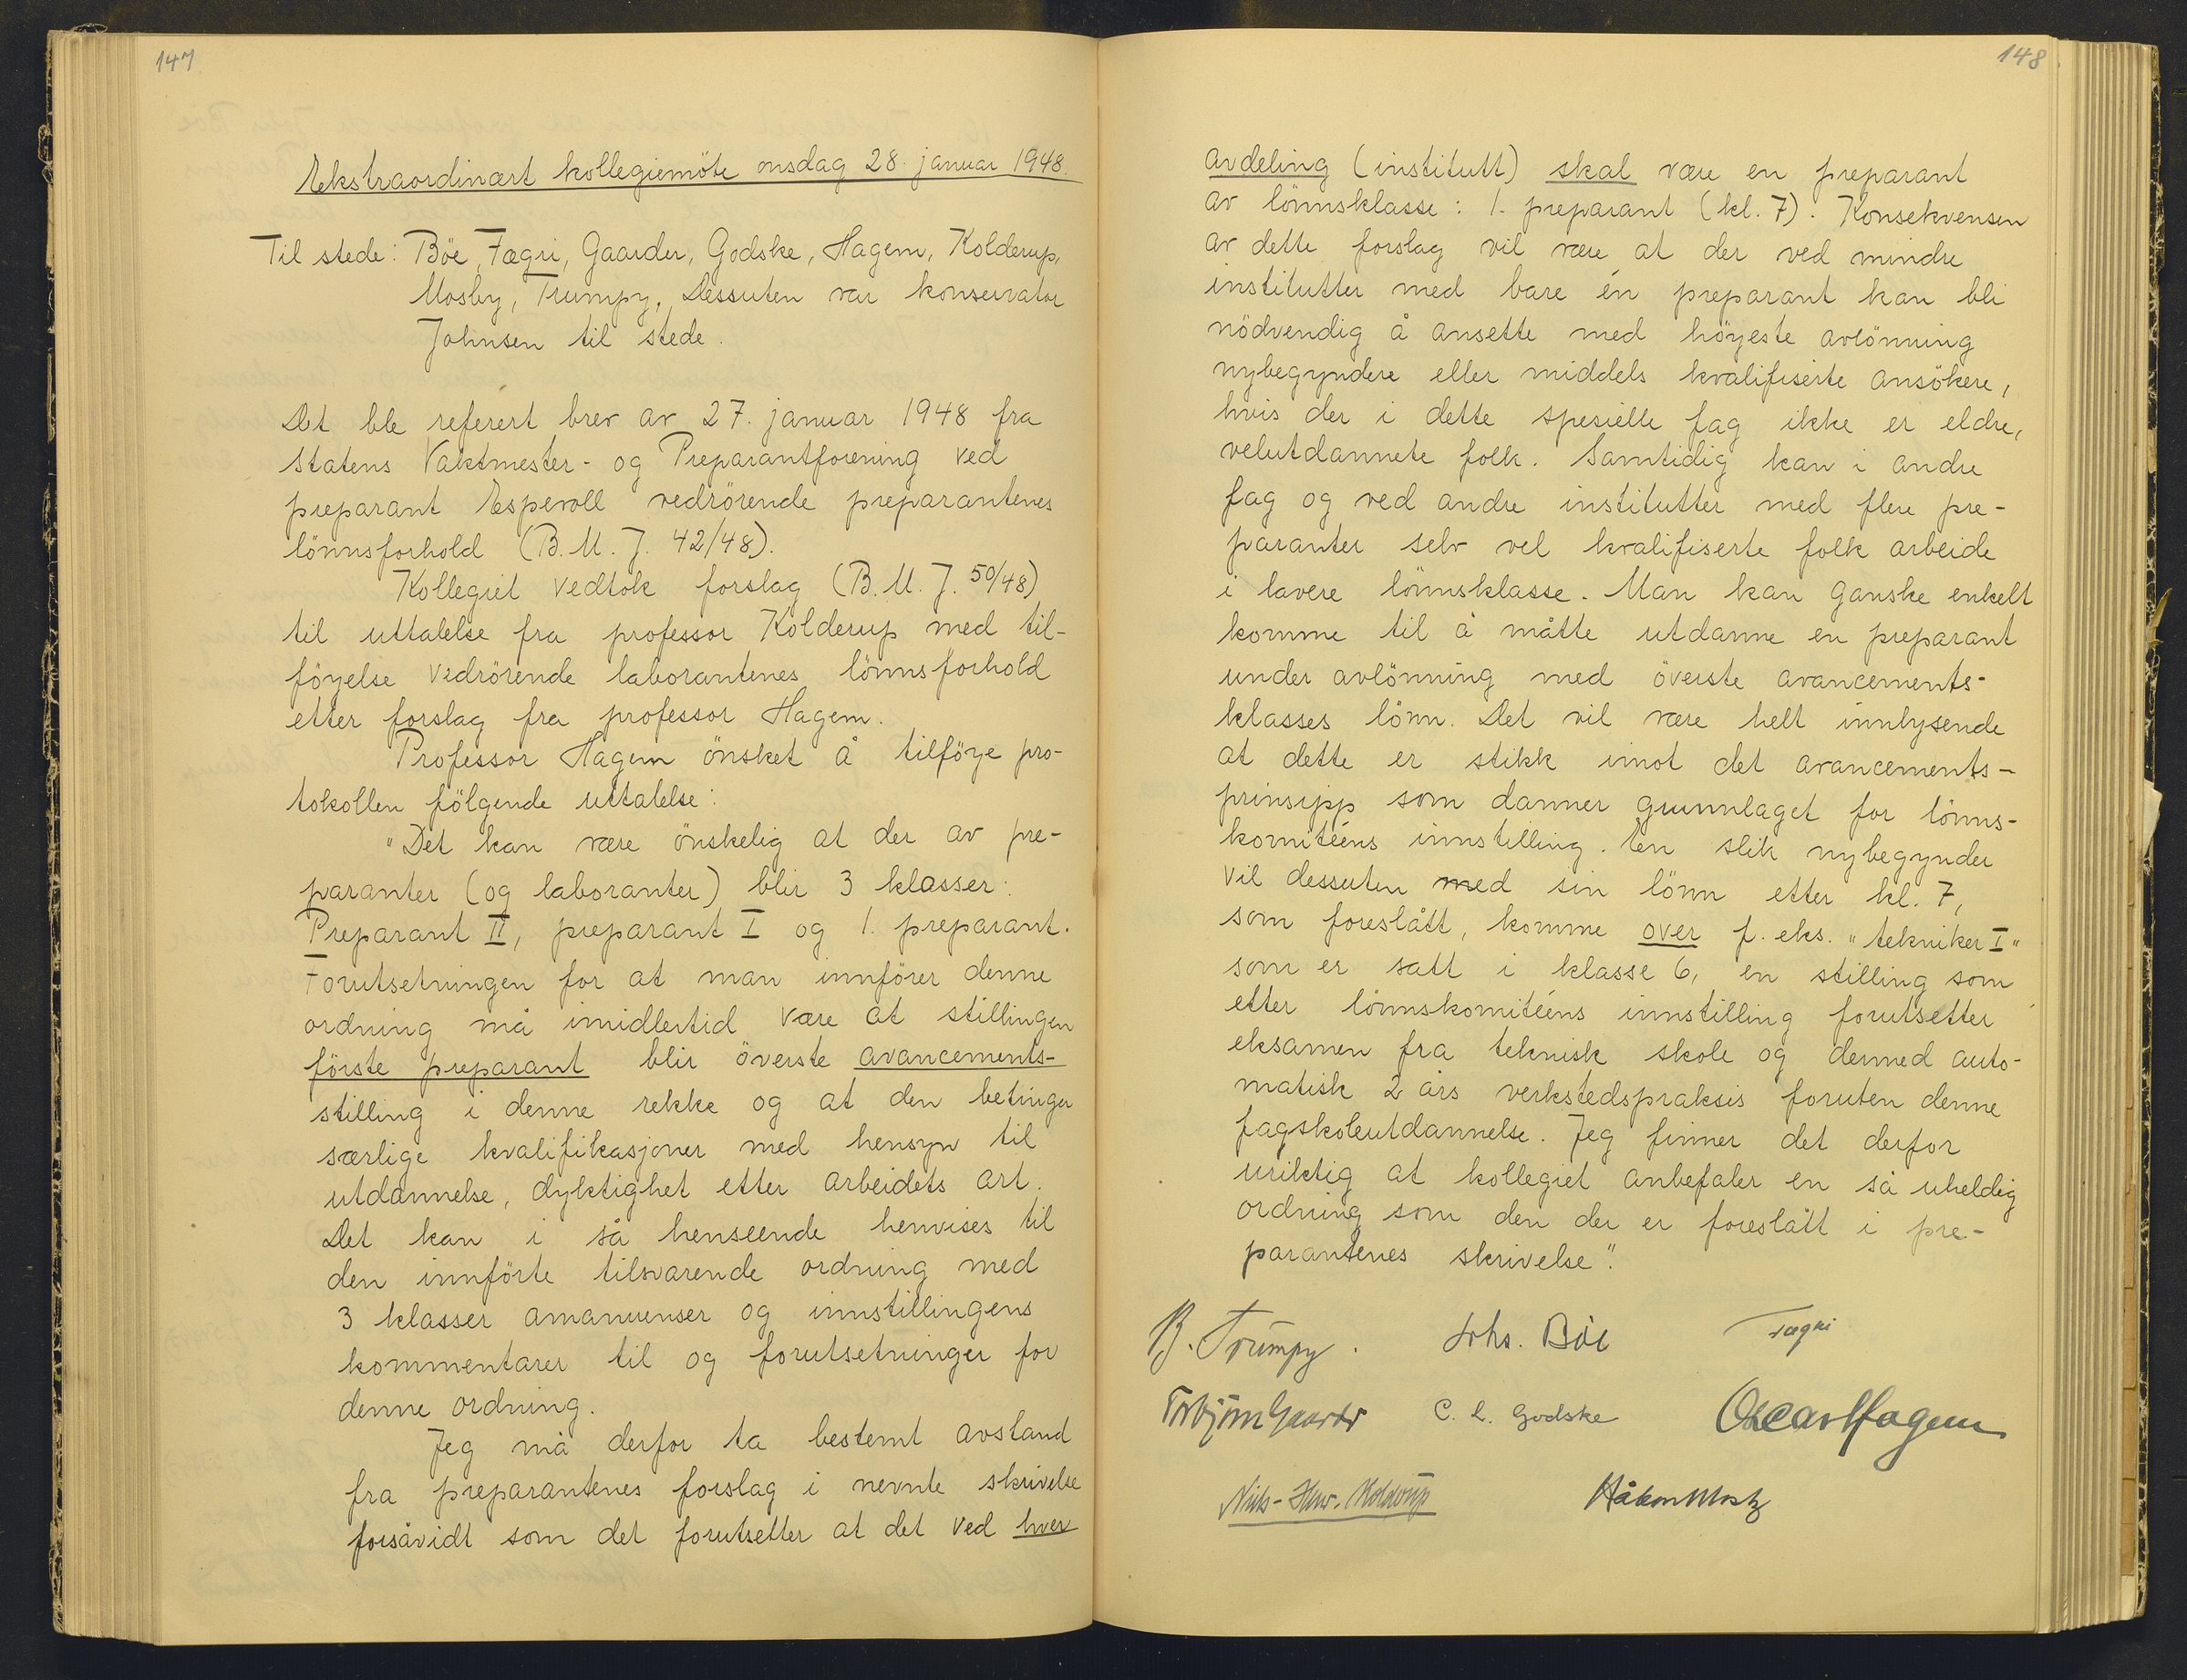 147
Ekstraordinært kollegiemöte onsdag 28. januar 1948.
Til stede: Böe, Fægri, Gaarder, Godske, Hagem, Kolderup,
Mosby, Trumpy. Dessuten var konservator
Johnsen til stede.
Det ble referert brev av 27. januar 1948 fra
Statens Vaktmester- og Preparantforening ved
preparant Espevoll vedrörende preparantenes
lönnsforhold (B.M.J. 42/48).
Kollegiet vedtok forslag (B.M.J. 50/48)
til uttalelse fra professor Kolderup med til-
föyelse vedrörende laborantenes lönnsforhold
etter forslag fra professor Hagem.
Professor Hagem önsket å tilföye pro-
tokollen fölgende uttalelse:
"Det kan være önskelig at der av pre-
paranter (og laboranter) blir 3 klasser:
Preparant II, preparant I og 1. preparant.
Forutsetningen for at man innförer denne
ordning må imidlertid være at stillingen
förste preparant blir överste avancements-
stilling i denne rekke og at den betinger
særlige kvalifikasjoner med hensyn til
utdannelse, dyktighet etter arbeidets art.
Det kan i så henseende henvises til
den innförte tilsvarende ordning med
3 klasser amanuenser og innstillingens
kommentarer til og forutsetninger for
denne ordning.
Jeg må derfor ta bestemt avstand
fra preparantenes forslag i nevnte skrivelse
forsåvidt som det forutsetter at det ved hver
148
avdeling (institutt) skal være en preparant
av lönnsklasse: 1. preparant (kl. 7). Konsekvensen
av dette forslag vil være at der ved mindre
institutter med bare én preparant kan bli
nödvendig å ansette med höyeste avlönning
nybegyndere eller middels kvalifiserte ansökere,
hvis der i dette spesielle fag ikke er eldre,
velutdannete folk. Samtidig kan i andre
fag og ved andre institutter med flere pre-
paranter selv vel kvalifiserte folk arbeide
i lavere lönnsklasse. Man kan ganske enkelt
komme til å måtte utdanne en preparant
under avlönning med överste avancements-
klasses lönn. Det vil være helt innlysende
at dette er stikk imot det avancements-
prinsipp som danner grunnlaget for lönns-
komitéens innstilling. En slik nybegynder
vil dessuten med sin lönn etter kl. 7,
som foreslått, komme over f. eks. "tekniker I"
som er satt i klasse 6, en stilling som
etter lönnskomitéens innstilling forutsetter
eksamen fra teknisk skole og dermed auto-
matisk 2 års verkstedspraksis foruten denne
fagskoleutdannelse. Jeg finner det derfor
uriktig at kollegiet anbefaler en så uheldig
ordning som den der er foreslått i pre-
parantenes skrivelse".
B. Trumpy. Johs. Böe Fægri
Torbjörn Gaarder C. L. Godske Oscar Hagem
Niels-Henr. Kolderup Håkon Mosby